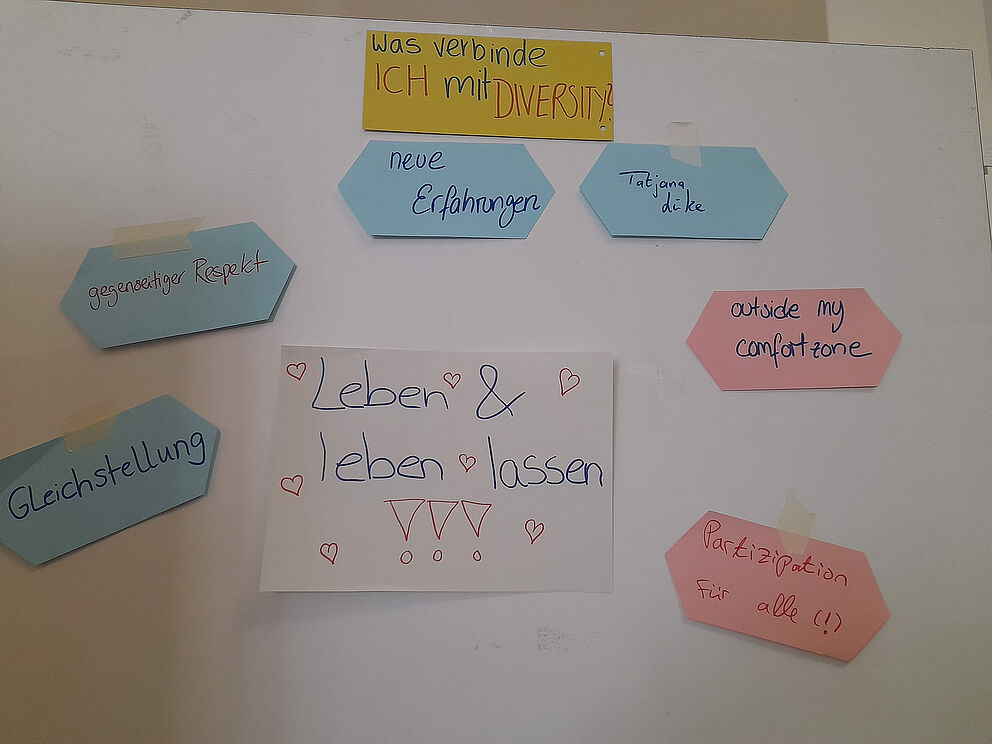 Was verbinde
ICH mit DIVERSITY?
neue
Erfahrungen
Tatjana
dike
gegenseitiger Respekt
outside my
comfortzone
Leben &
leben lassen
!!!
Gleichstellung
Partizipation
für alle (!)